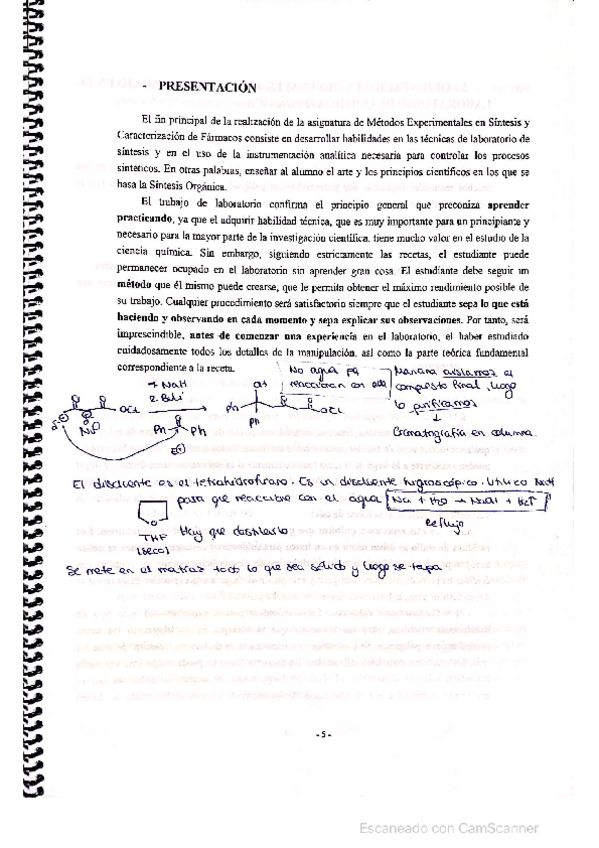 - PRESENTACIÓN
El fin principal de la realización de la asignatura de Métodos Experimentales en Síntesis y
Caracterización de Fármacos consiste en desarrollar habilidades en las técnicas de laboratorio de
síntesis y en el uso de la instrumentación analítica necesaria para controlar los procesos
sintéticos. En otras palabras, enseñar al alumno el arte y los principios científicos en los que se
basa la Síntesis Orgánica.
El trabajo de laboratorio confirma el principio general que preconiza aprender
practicando, ya que el adquirir habilidad técnica, que es muy importante para un principiante y
necesario para la mayor parte de la investigación científica, tiene mucho valor en el estudio de la
ciencia química. Sin embargo, siguiendo estrictamente las recetas, el estudiante puede
permanecer ocupado en el laboratorio sin aprender gran cosa. El estudiante debe seguir un
método que él mismo puede crearse, que le permita obtener el máximo rendimiento posible de
su trabajo. Cualquier procedimiento será satisfactorio siempre que el estudiante sepa lo que está
haciendo y observando en cada momento y sepa explicar sus observaciones. Por tanto, será
imprescindible, antes de comenzar una experiencia en el laboratorio, el haber estudiado
cuidadosamente todos los detalles de la manipulación, así como la parte teórica fundamental
correspondiente a la receta.
No agua pq Mañana aislamos el
1 NaH OH reaccionan con ella compuesto final, luego
2. BuLi lo purificamos
O O O O
OEt Ph OEt
Ph
Ph Ph Cromatografía en columna.
El disolvente es el tetrahidrofurano. Es un disolvente higroscópico. Utilizo
para que reaccione con el agua Na + H2O → NaOH +
O Reflujo
THF Hay que destilarlo
(seco)
Se mete en el matraz todo lo que sea sólido y luego se tapa
- 5 -
Escaneado con CamScanner